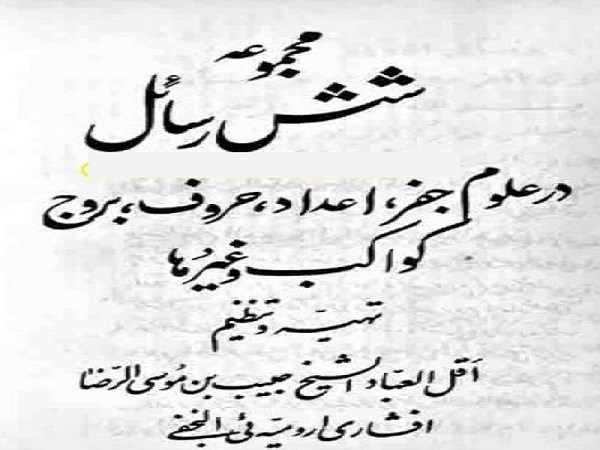 مجموعه
شش رسائل
در علوم جفر، اعداد، حروف، بروج
کواکب وغیرُها
تهیّه وتنظیم
اَقل العبّاد الشیخ حبیب بن مُوسی الرّضا
افشاری ارومیّه ئی النجفی